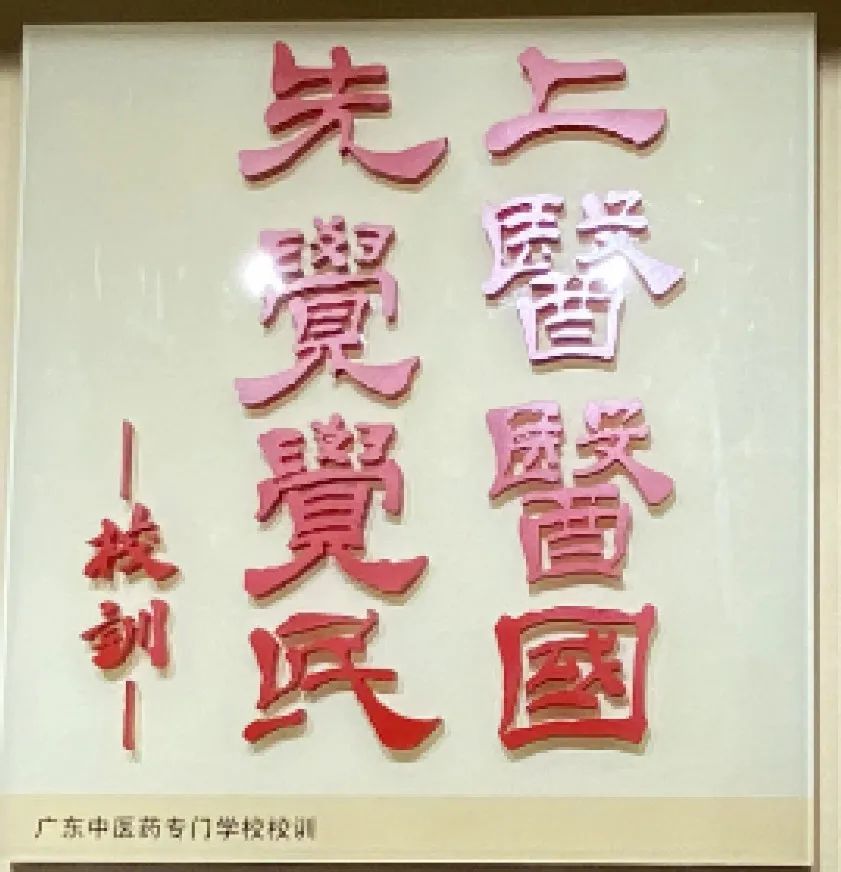 上醫醫國
先覺覺民
—校訓—
广东中医药专门学校校训